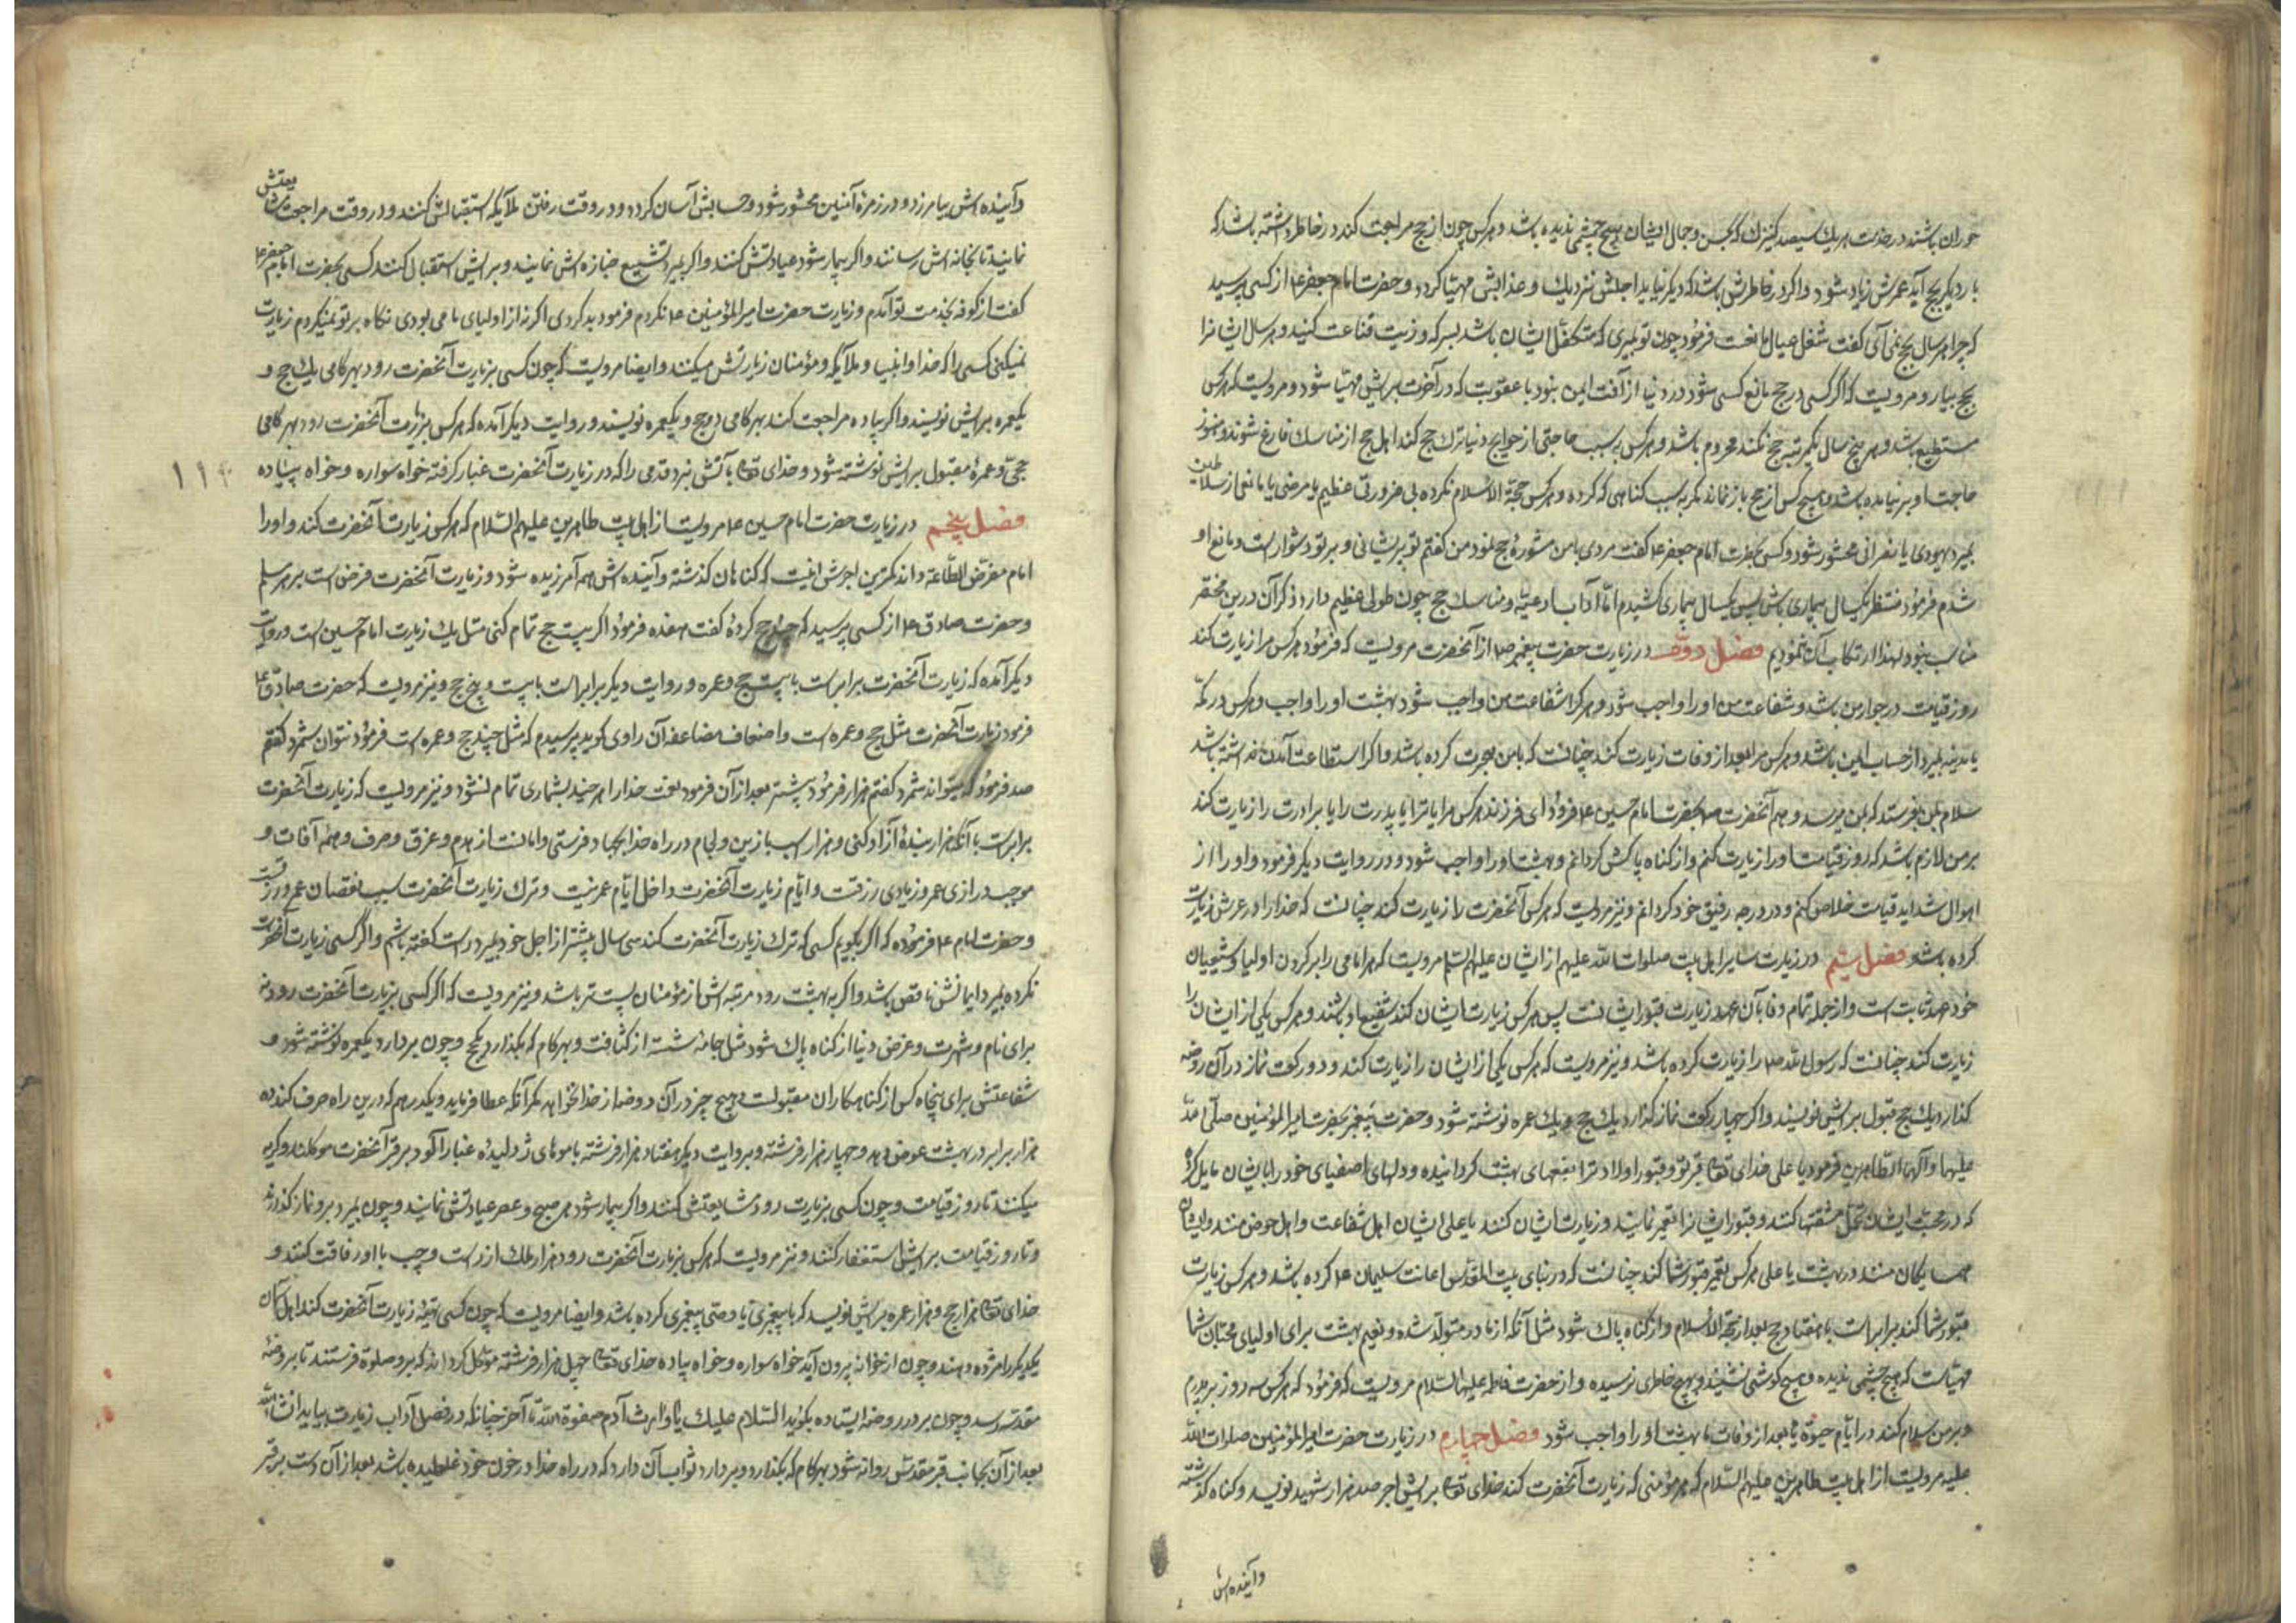 حوران باشند در خدمت هر یک سیصد کنیزک که بحسن و جمال ایشان هیچ چشمی ندیده باشد و هر کس چون از حج مراجعت کند در خاطر داشته باشد که
بار دیگر بحج آید عمرش زیاد شود و اگر در خاطرش باشد که دیگر نیاید اجلش نزدیک و عذابش مهیا گردد و حضرت امام جعفر ع از کسی پرسید
که چرا هر سال بحج نمی آئی گفت شغل عیال مانعست فرمود چون تو بمیری که متکفل ایشان باشد بسرکه و زیت قناعت کنید و هر سال ایشانرا
بحج بیار و مرویست که اگر کسی در حج مانع کسی شود در دنیا از آفت ایمن نبود با عقوبت که در آخرت برایش مهیا شود و مرویست که هر کس
مستطیع باشد و هر پنج سال یکمرتبه حج نکند محروم باشد و هر کس به سبب حاجتی از حوایج دنیا ترک حج کند اهل حج از مناسک فارغ شوند و هنوز
حاجت او بر نیامده باشد و هیچ کس از حج باز نماند مگر به سبب گناهی که کرده و هر کس حجة الاسلام نکرده بی ضرورتی عظیم یا مرضی یا مانعی از سلاطین
بمیرد یهودی یا نصرانی محشور شود و کسی بحضرت امام جعفر ع گفت مردی با من مشورهٔ حج نمود من گفتم تو پریشانی و بر تو دشوار است و مانع او
شدم فرمود منتظر یکسال بیماری باش پس یکسال بیماری کشیدم اما آداب و ادعیه و مناسک حج چون طولی عظیم دارد ذکر آن درین مختصر
مناسب نبود لهذا ارتکاب آن ننمودیم فصل دوم در زیارت حضرت پیغمبر ص از آنحضرت مرویست که فرمود هر کس مرا زیارت کند
روز قیامت در جوار من باشد و شفاعت من او را واجب شود و هر کرا شفاعت من واجب شود بهشت او را واجب و هر کس در مکه
یا مدینه بمیرد از حساب ایمن باشد و هر کس مرا بعد از وفات زیارت کند چنانست که با من هجرت کرده باشد و اگر استطاعت آمدن نداشته باشد
سلام بمن بفرستد که بمن میرسد و هم آنحضرت ص بحضرت امام حسین ع فرمود ای فرزند هر کس مرا یا ترا یا پدرت را یا برادرت را زیارت کند
بر من لازم باشد که روز قیامت او را زیارت کنم و از گناه پاکش گردانم و بهشت او را واجب شود و در روایت دیگر فرمود و او را از
اهوال شداید قیامت خلاص کنم و در درجه رفیق خود گردانم و نیز مرویست که هر کس آنحضرت را زیارت کند چنانست که خدا را در عرش زیارت
کرده باشد فصل سیم در زیارت سایر اهل بیت صلوات الله علیهم از ایشان علیهم السلام مرویست که هر امامی را بر گردن اولیا و شیعیان
خود عهد ثابت است و از جمله تمام وفا بآن عهد زیارت قبور ایشانست پس هر کس زیارت ایشان کند شفیع او باشند و هر کس یکی از ایشان را
زیارت کند چنانست که رسول الله ص را زیارت کرده باشد و نیز مرویست که هر کس یکی از ایشان را زیارت کند و دو رکعت نماز در آن روضه
گذارد یک حج قبول برایش نویسند و اگر چهار رکعت نماز گذارد یک حج و یک عمره نوشته شود و حضرت پیغمبر بحضرت امیرالمؤمنین صلی الله
علیهما و آلهما الطاهرین فرمود یا علی خدای تعالی قبر تو و قبور اولاد ترا بقعهای بهشت گردانیده و دلهای اصفیای خود را بایشان مایل کرده
که در محبت ایشان تحمل مشقتها کنند و قبور ایشانرا تعمیر نمایند و زیارت ایشان کنند یا علی ایشان اهل شفاعت و اهل حوض منند و ایشان
همسایگان منند در بهشت یا علی هر کس تعمیر قبور شما کند چنانست که در بنای بیت المقدس اعانت سلیمان ع کرده باشد و هر کس زیارت
قبور شما کند برابر است با هفتاد حج بعد از حجة الاسلام و از گناه پاک شود مثل آنکه از مادر متولد شده و نعیم بهشت برای اولیای محبان شما
مهیاست که هیچ چشمی ندیده و هیچ گوشی نشنیده و بهیچ خاطری نرسیده و از حضرت فاطمه علیها السلام مرویست که فرمود که هر کس سه روز بر پدرم
و بر من سلام کند در ایام حیوة یا بعد از وفات ما بهشت او را واجب شود فصل چهارم در زیارت حضرت امیرالمؤمنین صلوات الله
علیه مرویست از اهل بیت طاهرین علیهم السلام که هر مؤمنی که زیارت آنحضرت کند خدای تعالی برایش اجر صد هزار شهید نویسد و گناه گذشته
و آینده اش
و آینده اش بیامرزد و در زمرهٔ آمنین محشور شود و حسابش آسان گردد و در وقت رفتن ملایکه استقبالش کنند و در وقت مراجعت مشایعتش
نمایند تا بخانه اش رسانند و اگر بیمار شود عیادتش کنند و اگر بمیرد تشییع جنازه اش نمایند و برایش استقبال کنند کسی بحضرت امام جعفر ع
گفت از کوفه بخدمت تو آمدم و زیارت حضرت امیرالمؤمنین ع نکردم فرمود بد کردی اگر نه از اولیای ما می بودی نگاه بر تو نمیکردم زیارت
نمیکنی کسی را که خدا و انبیا و ملایکه و مؤمنان زیارتش میکنند و ایضا مرویست که چون کسی بزیارت آنحضرت رود بهر گامی یک حج و
یکعمره برایش نویسند و اگر پیاده مراجعت کند بهر گامی دو حج و یکعمره نویسند و روایت دیگر آمده که هر کس بزیارت آنحضرت رود بهر گامی
حجی و عمرهٔ مقبول برایش نوشته شود و خدای تعالی بآتش نبرد قدمی را که در زیارت آنحضرت غبار گرفته خواه سواره و خواه پیاده
۱۱۴
فصل پنجم در زیارت حضرت امام حسین ع مرویست از اهل بیت طاهرین علیهم السلام که هر کس زیارت آنحضرت کند و او را
امام مفترض الطاعه داند کمترین اجرش اینست که گناهان گذشته و آینده اش همه آمرزیده شود و زیارت آنحضرت فرض است بر هر مسلم
و حضرت صادق ع از کسی پرسید که چند حج کردهٔ گفت هفده فرمود اگر بیست حج تمام کنی مثل یک زیارت امام حسین است و روایت
دیگر آمده که زیارت آنحضرت برابر است با بیست حج و عمره و روایت دیگر برابر است با بیست و پنج حج و نیز مرویست که حضرت صادق ع
فرمود زیارت آنحضرت مثل حج و عمره است و اضعاف مضاعفه آن راوی گوید پرسیدم که مثل چند حج و عمره است فرمود نتوان شمرد گفتم
صد فرمود که میتواند شمرد گفتم هزار فرمود بیشتر بعد از آن فرمود نعمت خدا را هر چند بشماری تمام نشود و نیز مرویست که زیارت آنحضرت
برابر است با آنکه هزار بندهٔ آزاد کنی و هزار اسب با زین و لجام در راه خدا بجهاد فرستی و امانست از هدم و غرق و حرق و همه آفات و
موجب درازی عمر و زیادی رزقست و ایام زیارت آنحضرت داخل ایام عمر نیست و ترک زیارت آنحضرت سبب نقصان عمر و رزقست
و حضرت امام ع فرموده که اگر بگویم کسی که ترک زیارت آنحضرت کند سی سال پیشتر از اجل خود بمیرد راست گفته باشم و اگر کسی زیارت آنحضرت
نکرده بمیرد ایمانش ناقص باشد و اگر به بهشت رود مرتبه اش از مؤمنان پست تر باشد و نیز مرویست که اگر کسی بزیارت آنحضرت رود نه
برای نام و شهرت و غرض دنیا از گناه پاک شود مثل جامهٔ شسته از کثافت و بهر گام که بگذارد یکحج و چون بردارد یکعمره نوشته شود و
شفاعتش برای پنجاه کس از گناهکاران مقبولست و هیچ چیز در آن روضه از خدا نخواهد مگر آنکه عطا فرماید و یکدرهم که درین راه صرف کند ده
هزار برابر در بهشت عوض دهد و چهار هزار فرشته و بروایت دیگر هفتاد هزار فرشته با موهای ژولیده غبار آلود بر قبر آنحضرت موکلند و گریه
میکنند تا روز قیامت و چون کسی بزیارت رود مشایعتش کنند و اگر بیمار شود هر صبح و عصر عیادتش نمایند و چون بمیرد برو نماز گذارند
و تا روز قیامت برایش استغفار کنند و نیز مرویست که هر کس بزیارت آنحضرت رود هزار ملک از راست و چپ با او رفاقت کنند و
خدای تعالی هزار حج و هزار عمره برایش نویسد که با پیغمبری یا وصی پیغمبری کرده باشد و ایضا مرویست که چون کسی تهیهٔ زیارت آنحضرت کند اهل آسمان
یکدیگر را مژده دهند و چون از خانه بیرون آید خواه سواره و خواه پیاده خدای تعالی چهل هزار فرشته موکل گرداند که برو صلوة فرستند تا بروضهٔ
مقدسه رسد و چون بر در روضه ایستاده بگوید السلام علیک یا وارث آدم صفوة الله تا آخر چنانکه در فصل آداب زیارت بیاید انشاء الله
بعد از آن بجانب قبر مقدسش روانه شود بهر گام که بگذارد و بردارد ثواب آن دارد که در راه خدا در خون خود غلطیده باشد بعد از آن دست بر قبر